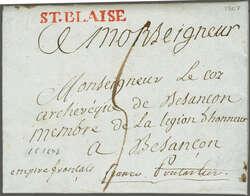 ST. BLAISE
a monseigneur
Monseigneur Le coz
archevêque de Besancon
membre de la legion d'honneur
a Besancon
empire français